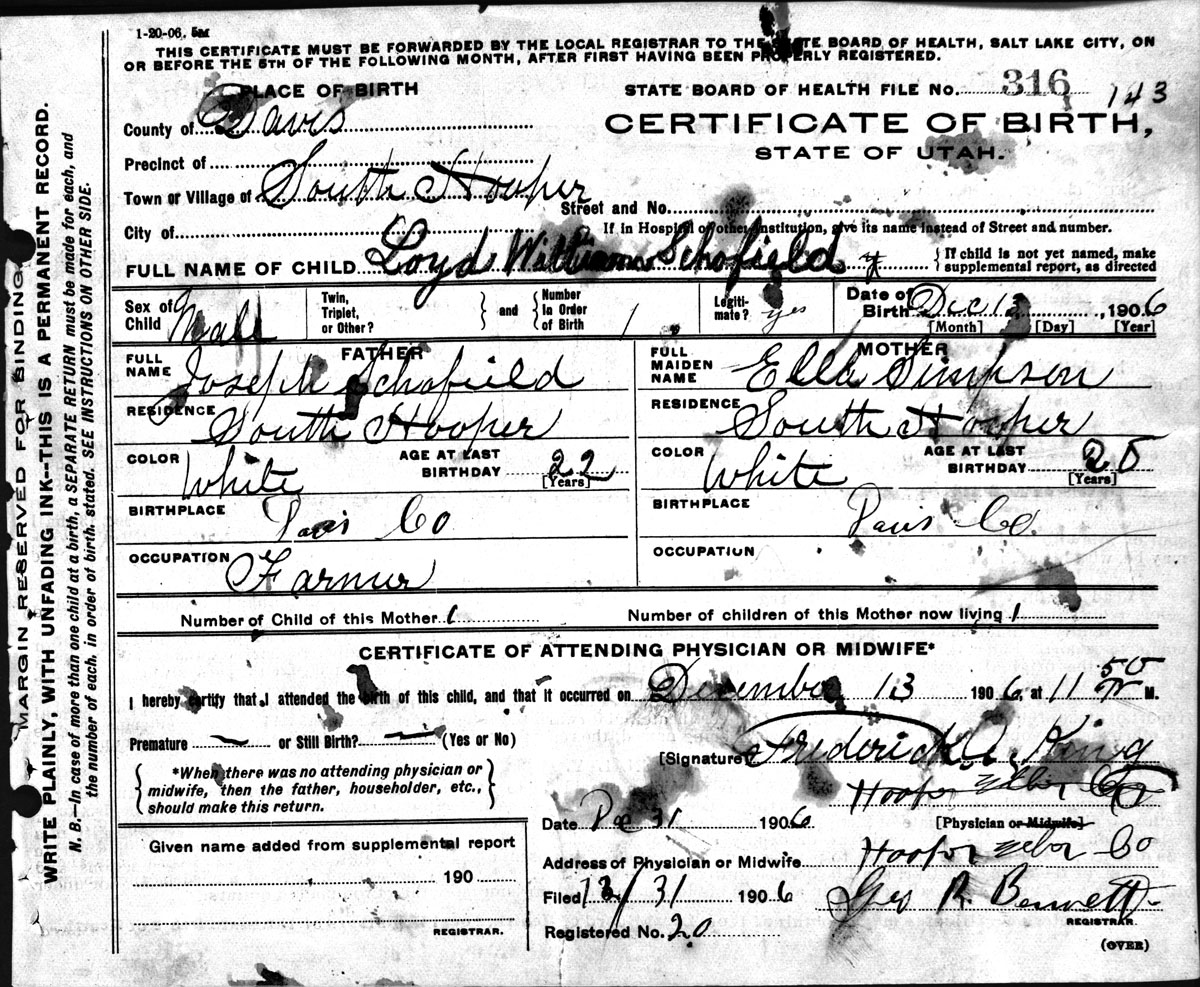 1-20-06. 5M
THIS CERTIFICATE MUST BE FORWARDED BY THE LOCAL REGISTRAR TO THE STATE BOARD OF HEALTH, SALT LAKE CITY, ON
OR BEFORE THE 5TH OF THE FOLLOWING MONTH, AFTER FIRST HAVING BEEN PROPERLY REGISTERED.
PLACE OF BIRTH
STATE BOARD OF HEALTH FILE No. 316 143
County of Davis
CERTIFICATE OF BIRTH,
STATE OF UTAH.
Precinct of
Town or Village of South Hooper
Street and No.
City of
If in Hospital or other Institution, give its name instead of Street and number.
FULL NAME OF CHILD Loyd William Schofield
If child is not yet named, make
supplemental report, as directed
Sex of Child Male
Twin, Triplet, or Other?
and
Number in Order of Birth 1
Legitimate? yes
Date of Birth Dec 13, 1906
[Month] [Day] [Year]
FATHER
FULL NAME Joseph Schofield
RESIDENCE South Hooper
COLOR White
AGE AT LAST BIRTHDAY 22
[Years]
BIRTHPLACE Davis Co
OCCUPATION Farmer
MOTHER
FULL MAIDEN NAME Ella Simpson
RESIDENCE South Hooper
COLOR White
AGE AT LAST BIRTHDAY 20
[Years]
BIRTHPLACE Davis Co.
OCCUPATION
Number of Child of this Mother 1
Number of children of this Mother now living 1
CERTIFICATE OF ATTENDING PHYSICIAN OR MIDWIFE*
I hereby certify that I attended the birth of this child, and that it occurred on December 13 1906, at 11 50 M.
Premature — or Still Birth? — (Yes or No)
[Signature] Frederick King
*When there was no attending physician or
midwife, then the father, householder, etc.,
should make this return.
Hooper Weber Co
[Physician or Midwife]
Date Dec 31 1906
Address of Physician or Midwife Hooper Weber Co
Filed 12/31 1906
Geo R. Bennett
REGISTRAR.
Registered No. 20
(OVER)
Given name added from supplemental report
190
REGISTRAR.
MARGIN RESERVED FOR BINDING.
WRITE PLAINLY, WITH UNFADING INK--THIS IS A PERMANENT RECORD.
N. B.—In case of more than one child at a birth, a SEPARATE RETURN must be made for each, and
the number of each, in order of birth, stated. SEE INSTRUCTIONS ON OTHER SIDE.